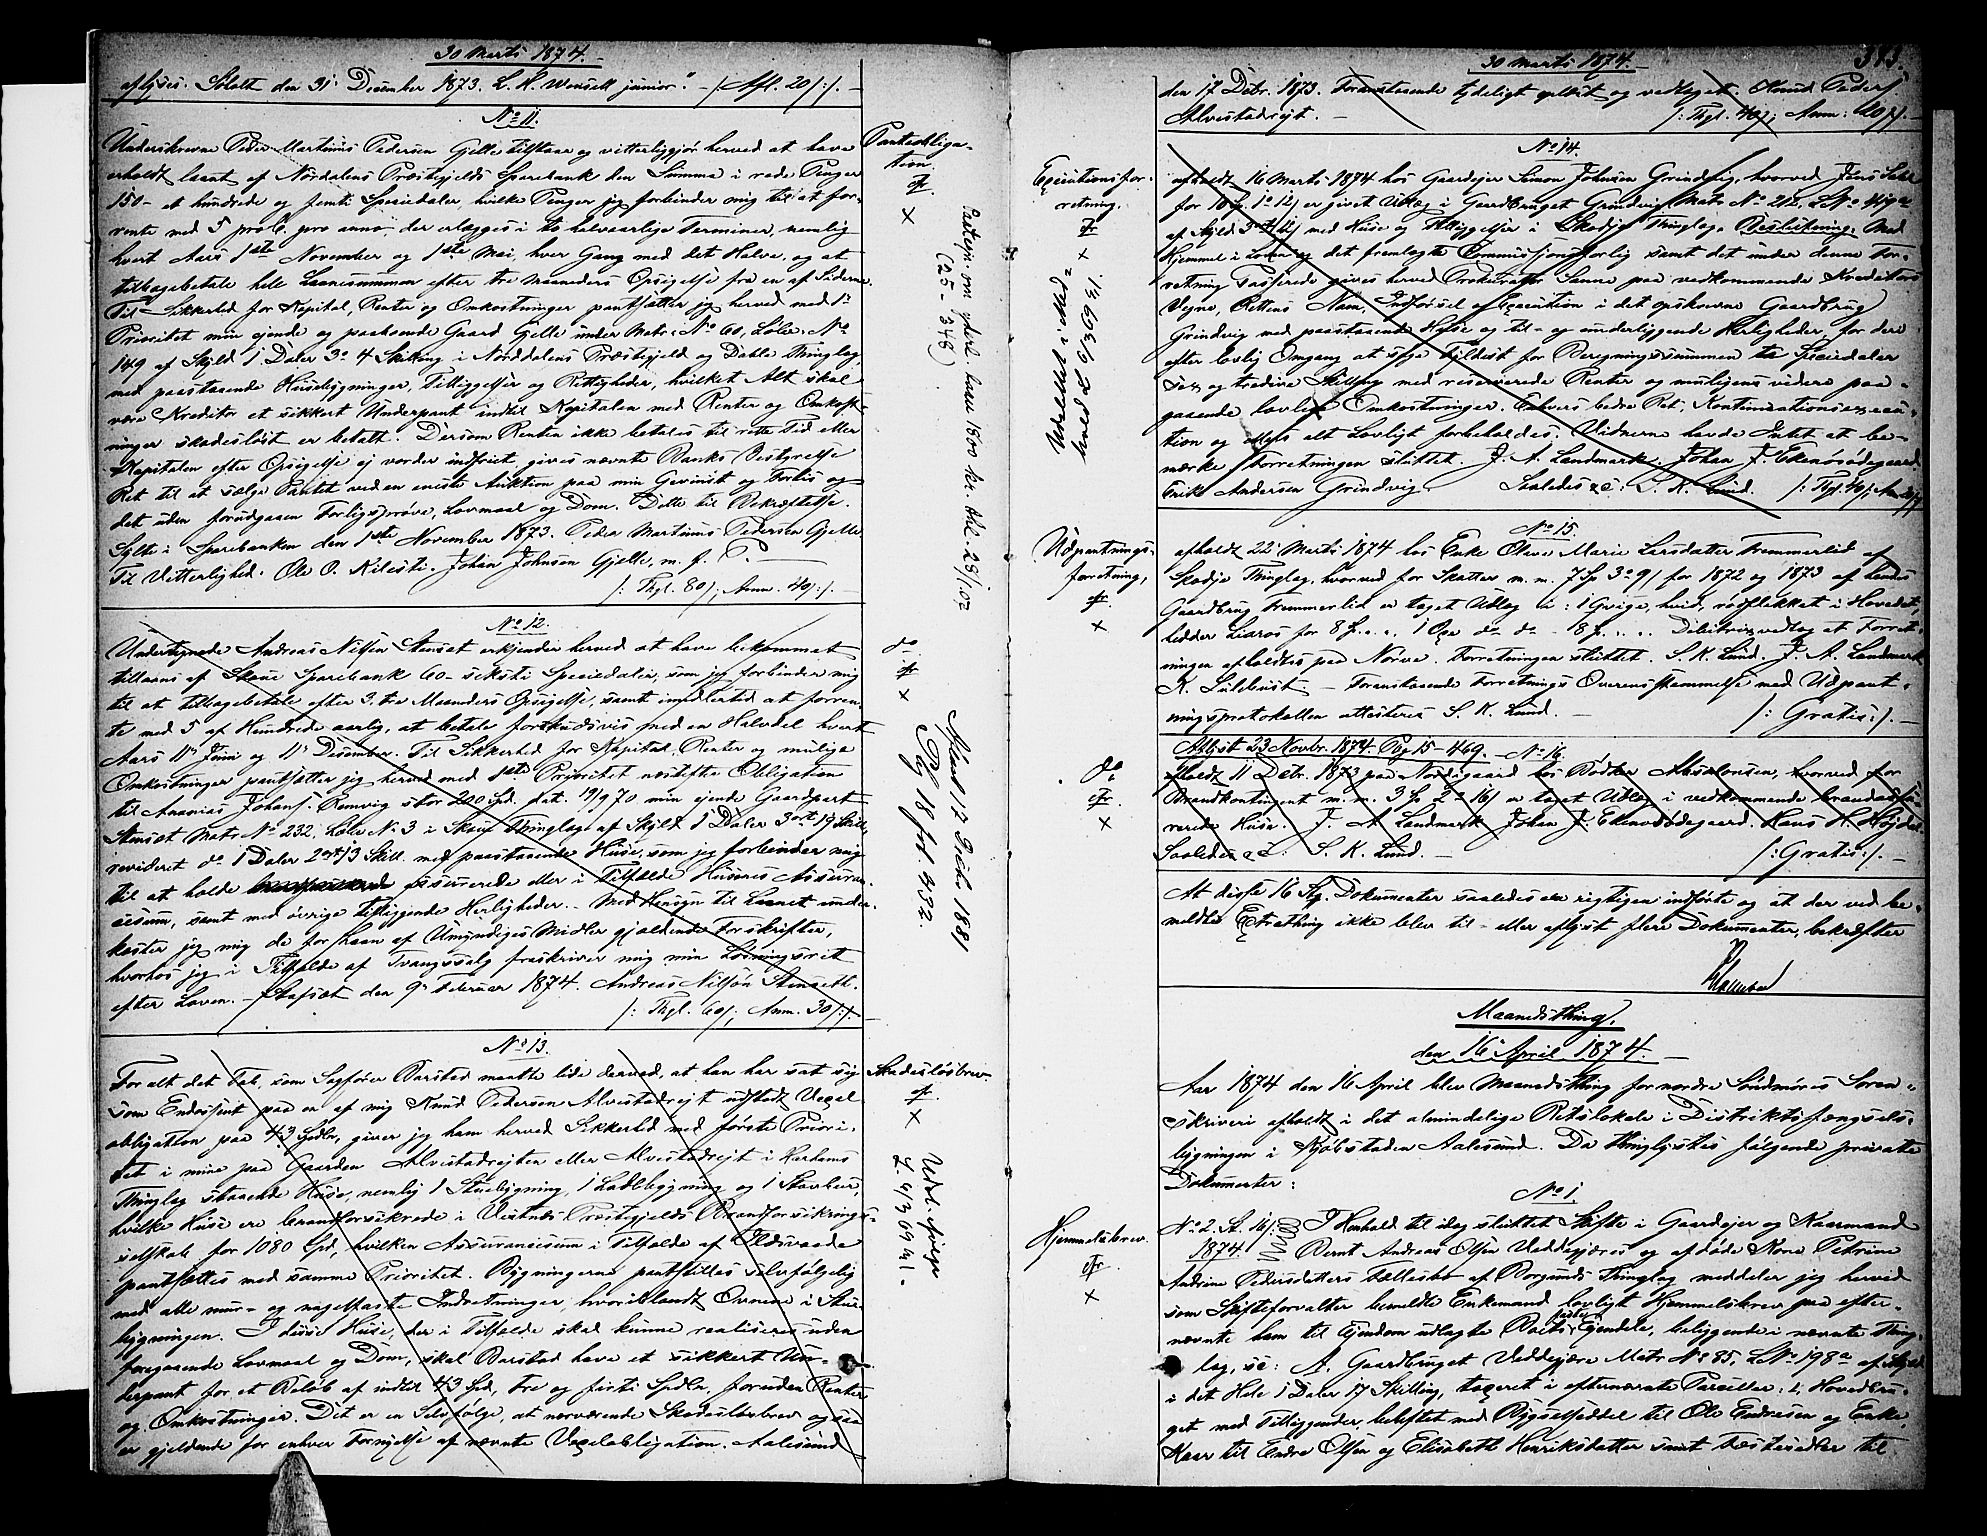 30 Marts 1874.
aflyses. Soholt den 31' December 1873. L. K. Wensell junior." - /: Afl. 20 /:/. -
No 11.
Panteobliga-
tion.
Underskrevne Peder Martinus Pedersen Gjelle tilstaar og vitterliggjør herved at have
erholdt laant af Nordalens Præstegjelds Sparebank den Summa i rede Penger
150 - et hundrede og femti Speciedaler, hvilke Penger jeg forbinder mig til at for-
rente med 5 pro C. pro anno, der erlægges i to halvaarlige Terminer, nemlig
hvert Aars 1ste November og 1ste Mai, hver Gang med det Halve, og at
tilbagebetale hele Laanesummen efter tre Maaneders Opsigelse fra en af Siderne.
Til Sikkerhed for Kapital, Renter og Omkostninger pantsætter jeg herved med 1ste
Prioritet min eiende og paaboende Gaard Gjelle under Matr. No 60, Løbe No
149 af Skyld 1 Daler 3 o 4 Skilling i Norddalens Præstegjeld og Dahle Thinglag,
med paastaaende Husebygninger, Tilliggelser og Rettigheder, hvilket Alt skal
være Kreditor et sikkert Underpant indtil Kapitalen med Renter og Omkost-
ninger skadesløst er betalt. Dersom Renten ikke betales til rette Tid eller
Kapitalen efter Opsigelse ej vorder indfriet gives nævnte Banks Bestyrelse
Ret til at sælge Pantet ved en eneste Auktion paa min Gevinst og Forlis og
det uden forudgaaen Forligsprøve, Lovmaal og Dom. Dette til Bekræftelse.
Sylte i Sparebanken den 1ste November 1873. Peder Martinus Pedersen Gjelle.
Til Vitterlighed. Ole O. Kilesti. Johan Johnsen Gjelle, m. f. P.
/: Thgl. 80 /; Anm. 40 /:/. -
(25 - 348)
No 12.
Undertegnede Andreas Nilsen Stenset erkjender herved at have bekommet
tillaans af Skoue Sparebank 60 - seksti Speciedaler, som jeg forbinder mig
til at tilbagebetale efter 3. tre Maaneders Opsigelse, samt imidlertid at forren-
te med 5 af Hundrede aarlig, at betale forskudsvis med en Halvdel hvert
Aars 11te Juni og 11te December. Til Sikkerhed for Kapital, Renter og mulige
Omkostninger pantsætter jeg herved med 1ste Prioritet næstefter Obligation
til Ananias Johans. Remvig stor 200 Spd. dat. 19/9 70 min eiende Gaardpart
Stenset Matr. No 232. Løbe No 3 i Skoue Thinglag af Skyld 1 Daler 3 ort 17 Skill.
revideret do 1 Daler 2 ort 13 Skill. med paastaaende Huse, som jeg forbinder mig
til at holde assurerede eller i Tilfælde Husenes Assuran-
cesum, samt med øvrige tilliggende Herligheder. - Med Hensyn til Laanet under-
kaster jeg mig de for Laan af Umyndiges Midler gjældende Forskrifter,
hvorhos jeg i Tilfælde af Tvangssalg fraskriver mig min Løsningsret
efter Loven. - Stafset den 9' Februar 1874. Andreas Nilsøn Stenseth.
/: Thgl. 60 /; Anm. 30 /:/. -
Aflæst 12 Decbr 1881
Pag 18 fol. 932.
No 13.
Skadesløsbrev.
For alt det Tab, som Sagfører Barstad maatte lide derved, at han har sat sig
som Endossent paa en af mig Knud Pedersen Alvestadrejt udstedt Vexel
obligation paa 43 Spdlr, giver jeg ham herved Sikkerhed med første Priori-
tet i mine paa Gaarden Alvestadrejten eller Alvestadrejt i Harhams
Thinglag staaende Huse, nemlig 1 Stuebygning, 1 Ladebygning og 1 Stavbur,
hvilke Huse ere brandforsikrede i Vestnes Præstegjelds Brandforsikrings-
selskab for 1080 Spd, hvilken Assurancesum i Tilfælde af Ildsvaade
pantsættes med samme Prioritet. Bygningerne pantsættes selvfølgelig
med alle mur- og nagelfaste Indretninger, hvoriblandt Ovnene i Stue-
bygningen. I disse Huse, der i Tilfælde skal kunne realiseres uden
foregaaende Lovmaal og Dom, skal Barstad have et sikkert Un-
derpant for et Beløb af indtil 43 Spd, tre og firti Spdlr, foruden Renter
og Omkostninger. Det er en Selvfølge, at nærværende Skadesløsbrev ogsaa
er gjeldende for enhver Fornyelse af nævnte Vexelobligation. Aalesund
30 Marts 1874.
383.
den 17 Decbr. 1873. Foranstaaende tydeligt oplæst og vedtaget. Knud Peders.
Alvestadrejt. - /: Thgl. 40 /; Anm: 20 /:/. -
No 14.
Executionsfor-
retning.
afholdt 16 Marts 1874 hos Gaardejer Simon Johnsen Grindvig, hvorved
for er givet Udlæg i Gaardbruget Grindvig Matr. No 212,
af Skyld med Huse og Tilliggelser i Skodje Thinglag. Beslutning: Med
Hjemmel i Loven og det fremlagte Commissionsforlig samt det under denne For-
retning Passerede gives herved Prokurator Sanne paa vedkommende Kreditors
Vegne, Rettens Navn, Indførsel og Execution i det opskrevne Gaardbrug
Grindvig med paastaaende Huse og til- og underliggende Herligheder, for deri
efter lovlig Omgang at søge Fyldest for Beregningssummen ti Speciedaler
og tredive Skilling med reserverede Renter og muligens videre paa-
gaaende lovlige Omkostninger. Enhvers bedre Ret, Kontinuationsexecu-
tion og ellers alt Lovligt forbeholdes. Vidnerne havde Intet at be-
mærke. Forretningen sluttet. J. A. Landmark. Johan J. Ekenæsødegaard
Erik Andersen Grindvig. Saaledes S. K. Lund. /: Thgl. 40 /; Anm 20 /:/
No 15.
Udpantnings-
forretning,
afholdt 22 Marts 1874 hos Enke Oline Marie Larsdatter Fremmerlid af
Skodje Thinglag, hvorved for Skatter m. m. 7 Sp 3 o 9 / for 1872 og 1873 af hendes
Gaardbrug Fremmerlid er taget Udlæg i: 1 Qvige, hvid, rødflekket i Hovedet,
hedder Liaros for 8 Sp. 1 Oxe do do - 8 Sp. Debitrix vedtog at Forret-
ningen afholdtes paa Nørve. Forretningen sluttet. S. K. Lund. J. A. Landmark
K. - Foranstaaende Forretnings Overensstemmelse med Udpant-
ningsprotokollen attesteres S. K. Lund. - /: Gratis :/. -
Aflyst 23 Novbr. 1874. Pag 15 - 469. - No 16.
do
afholdt 11 Decbr. 1873 paa Nordigaard hos Bødker Absalonsen, hvorved for
Brandkontingent m. m. 3 Sp 2 o 16 / er taget Udlæg i vedkommende brandassu-
rerede Huse. J. A. Landmark Johan J. Ekenæsødegaard. Hans H.
Saaledes S. K. Lund. - /: Gratis :/. -
At disse 16 Stkr. Dokumenter saaledes ere rigtigen indførte og at der ved be-
meldte Extrathing ikke blev til- eller aflyst flere Dokumenter, bekræfter
Maanedsthing,
den 16' April 1874. -
Aar 1874 den 16 April blev Maanedsthing for nordre Søndmøres Soren-
skriveri afholdt i det almindelige Retslokale i Distriktsfængsels-
bygningen i Kjøbstaden Aalesund. Da thinglystes følgende private
Dokumenter:
No 1.
Hjemmelsbrev.
No 2. St. 16/.
1874.
I Henhold til idag sluttet Skifte i Gaardejer og Kaarmand
Bernt Andreas Olsen Veddegjæres og afdøde Kone Petrine
Andrine Pedersdatters Fællesbo af Borgunds Thinglag meddeler jeg herved
som Skifteforvalter bemeldte Enkemand lovligt Hjemmelsbrev paa efter-
nævnte ham til Ejendom udlagte Boets faste Ejendele, beliggende i nævnte Thing-
lag, se: A. Gaardbruget Veddegjære Matr. No 85, L No 198 a af Skyld
i det Hele 1 Daler 17 Skilling, taxeret i efternævnte Parceller: 1, Hovedbru-
get med Tilliggender, beheftet med Bygselseddel til Ole Endresen og Enke,
Kaar til Endre Olsen og Elisabeth Henriksdatter samt Fæstesedler til